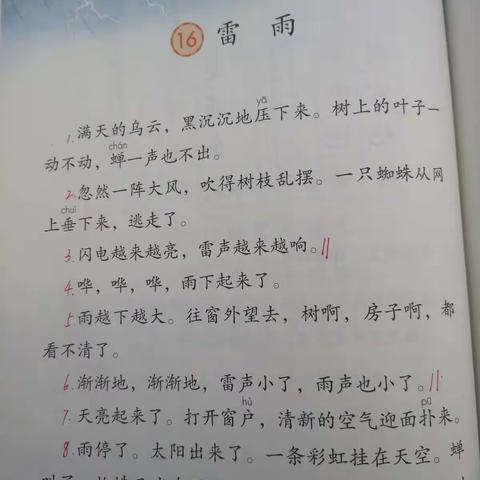 16 雷雨
yā
1.满天的乌云，黑沉沉地压下来。树上的叶子一
chán
动不动，蝉一声也不出。
2.忽然一阵大风，吹得树枝乱摆。一只蜘蛛从网
chuí
上垂下来，逃走了。
3.闪电越来越亮，雷声越来越响。||
4.哗，哗，哗，雨下起来了。
5.雨越下越大。往窗外望去，树啊，房子啊，都
看不清了。
6.渐渐地，渐渐地，雷声小了，雨声也小了。||
hù pū
7.天亮起来了。打开窗户，清新的空气迎面扑来。
8.雨停了。太阳出来了。一条彩虹挂在天空。蝉